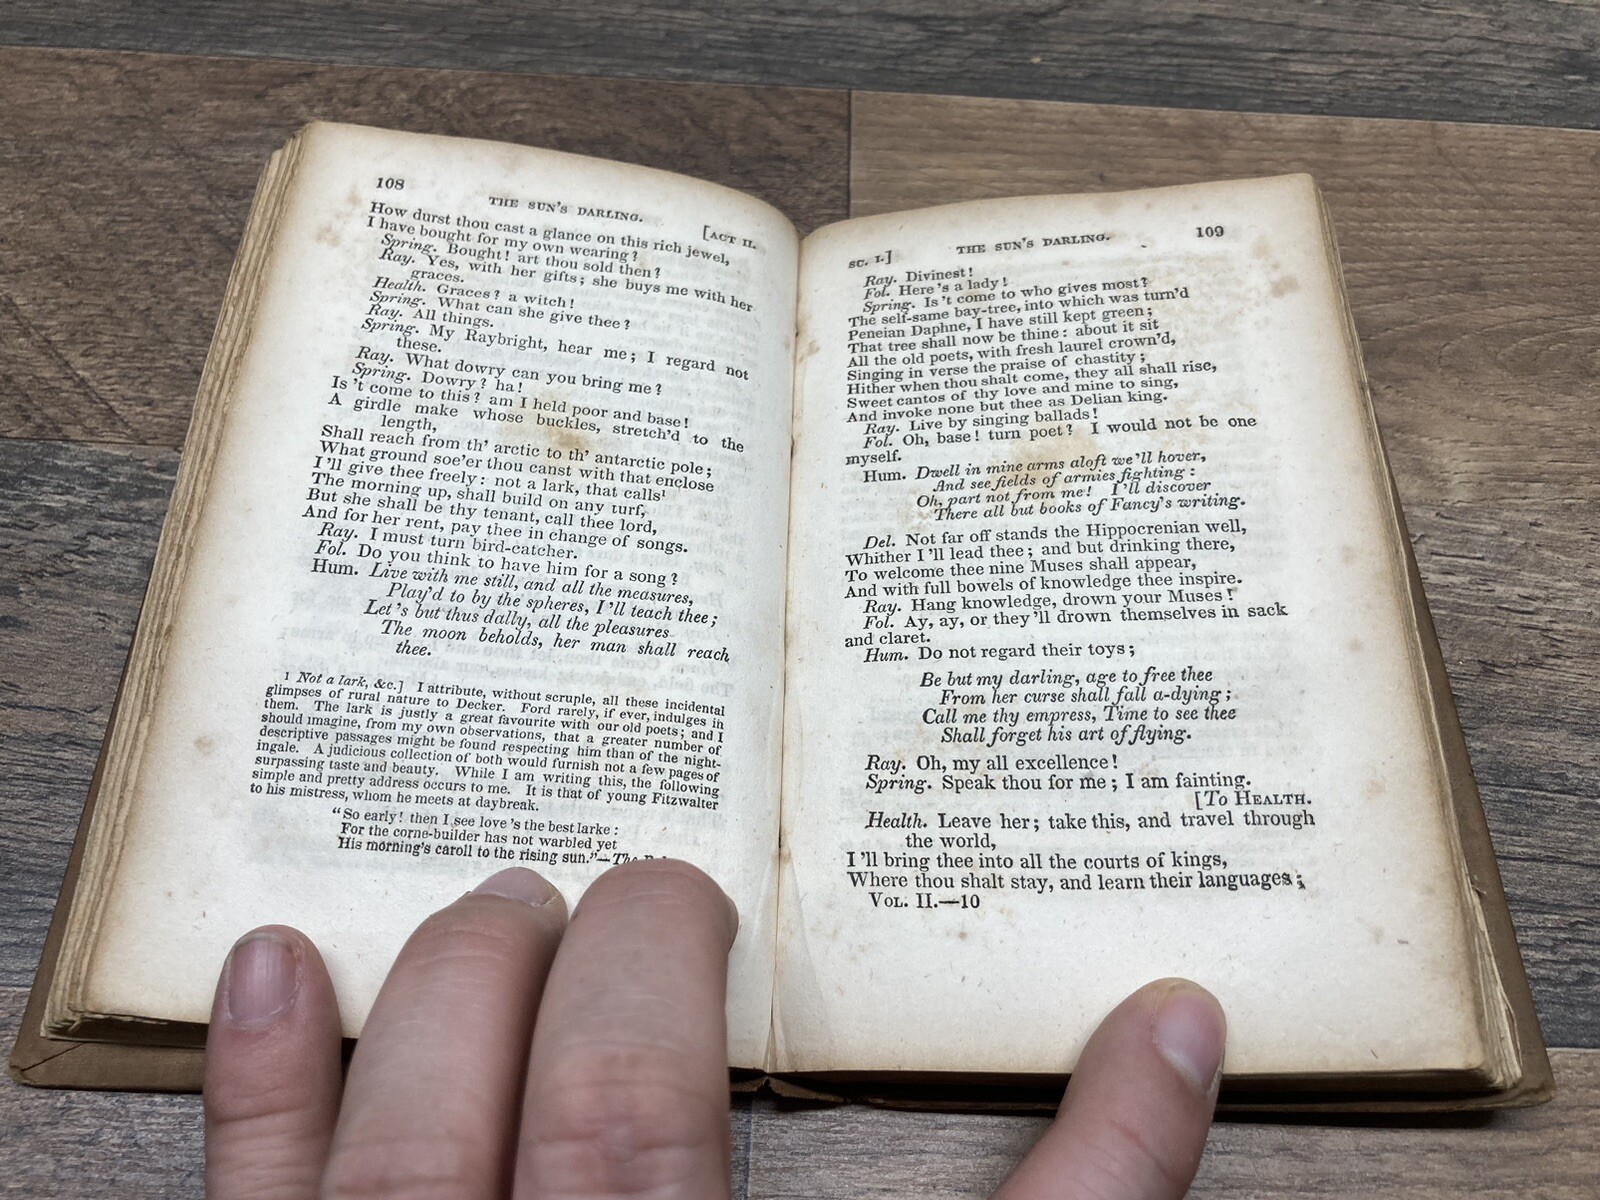 108
THE SUN'S DARLING.
[ACT II.
How durst thou cast a glance on this rich jewel,
I have bought for my own wearing?
Spring. Bought! art thou sold then?
Ray. Yes, with her gifts; she buys me with her
graces.
Health. Graces? a witch!
Spring. What can she give thee?
Ray. All things.
Spring. My Raybright, hear me; I regard not
these.
Ray. What dowry can you bring me?
Spring. Dowry? ha!
Is 't come to this? am I held poor and base!
A girdle make whose buckles, stretch'd to the
length,
Shall reach from th' arctic to th' antarctic pole;
What ground soe'er thou canst with that enclose
I'll give thee freely: not a lark, that calls¹
The morning up, shall build on any turf,
But she shall be thy tenant, call thee lord,
And for her rent, pay thee in change of songs.
Ray. I must turn bird-catcher.
Fol. Do you think to have him for a song?
Hum. Live with me still, and all the measures,
Play'd to by the spheres, I'll teach thee;
Let's but thus dally, all the pleasures
The moon beholds, her man shall reach
thee.
1 Not a lark, &c.] I attribute, without scruple, all these incidental
glimpses of rural nature to Decker. Ford rarely, if ever, indulges in
them. The lark is justly a great favourite with our old poets; and I
should imagine, from my own observations, that a greater number of
descriptive passages might be found respecting him than of the night-
ingale. A judicious collection of both would furnish not a few pages of
surpassing taste and beauty. While I am writing this, the following
simple and pretty address occurs to me. It is that of young Fitzwalter
to his mistress, whom he meets at daybreak.
"So early! then I see love's the best larke:
For the corne-builder has not warbled yet
His morning's caroll to the rising sun."—The
SC. I.]
THE SUN'S DARLING.
109
Ray. Divinest!
Fol. Here's a lady!
Spring. Is't come to who gives most?
The self-same bay-tree, into which was turn'd
Peneian Daphne, I have still kept green;
That tree shall now be thine: about it sit
All the old poets, with fresh laurel crown'd,
Singing in verse the praise of chastity;
Hither when thou shalt come, they all shall rise,
Sweet cantos of thy love and mine to sing,
And invoke none but thee as Delian king.
Ray. Live by singing ballads!
Fol. Oh, base! turn poet? I would not be one
myself.
Hum. Dwell in mine arms aloft we'll hover,
And see fields of armies fighting:
Oh, part not from me! I'll discover
There all but books of Fancy's writing.
Del. Not far off stands the Hippocrenian well,
Whither I'll lead thee; and but drinking there,
To welcome thee nine Muses shall appear,
And with full bowels of knowledge thee inspire.
Ray. Hang knowledge, drown your Muses!
Fol. Ay, ay, or they'll drown themselves in sack
and claret.
Hum. Do not regard their toys;
Be but my darling, age to free thee
From her curse shall fall a-dying;
Call me thy empress, Time to see thee
Shall forget his art of flying.
Ray. Oh, my all excellence!
Spring. Speak thou for me; I am fainting.
[To HEALTH.
Health. Leave her; take this, and travel through
the world,
I'll bring thee into all the courts of kings,
Where thou shalt stay, and learn their languages;
VOL. II.—10